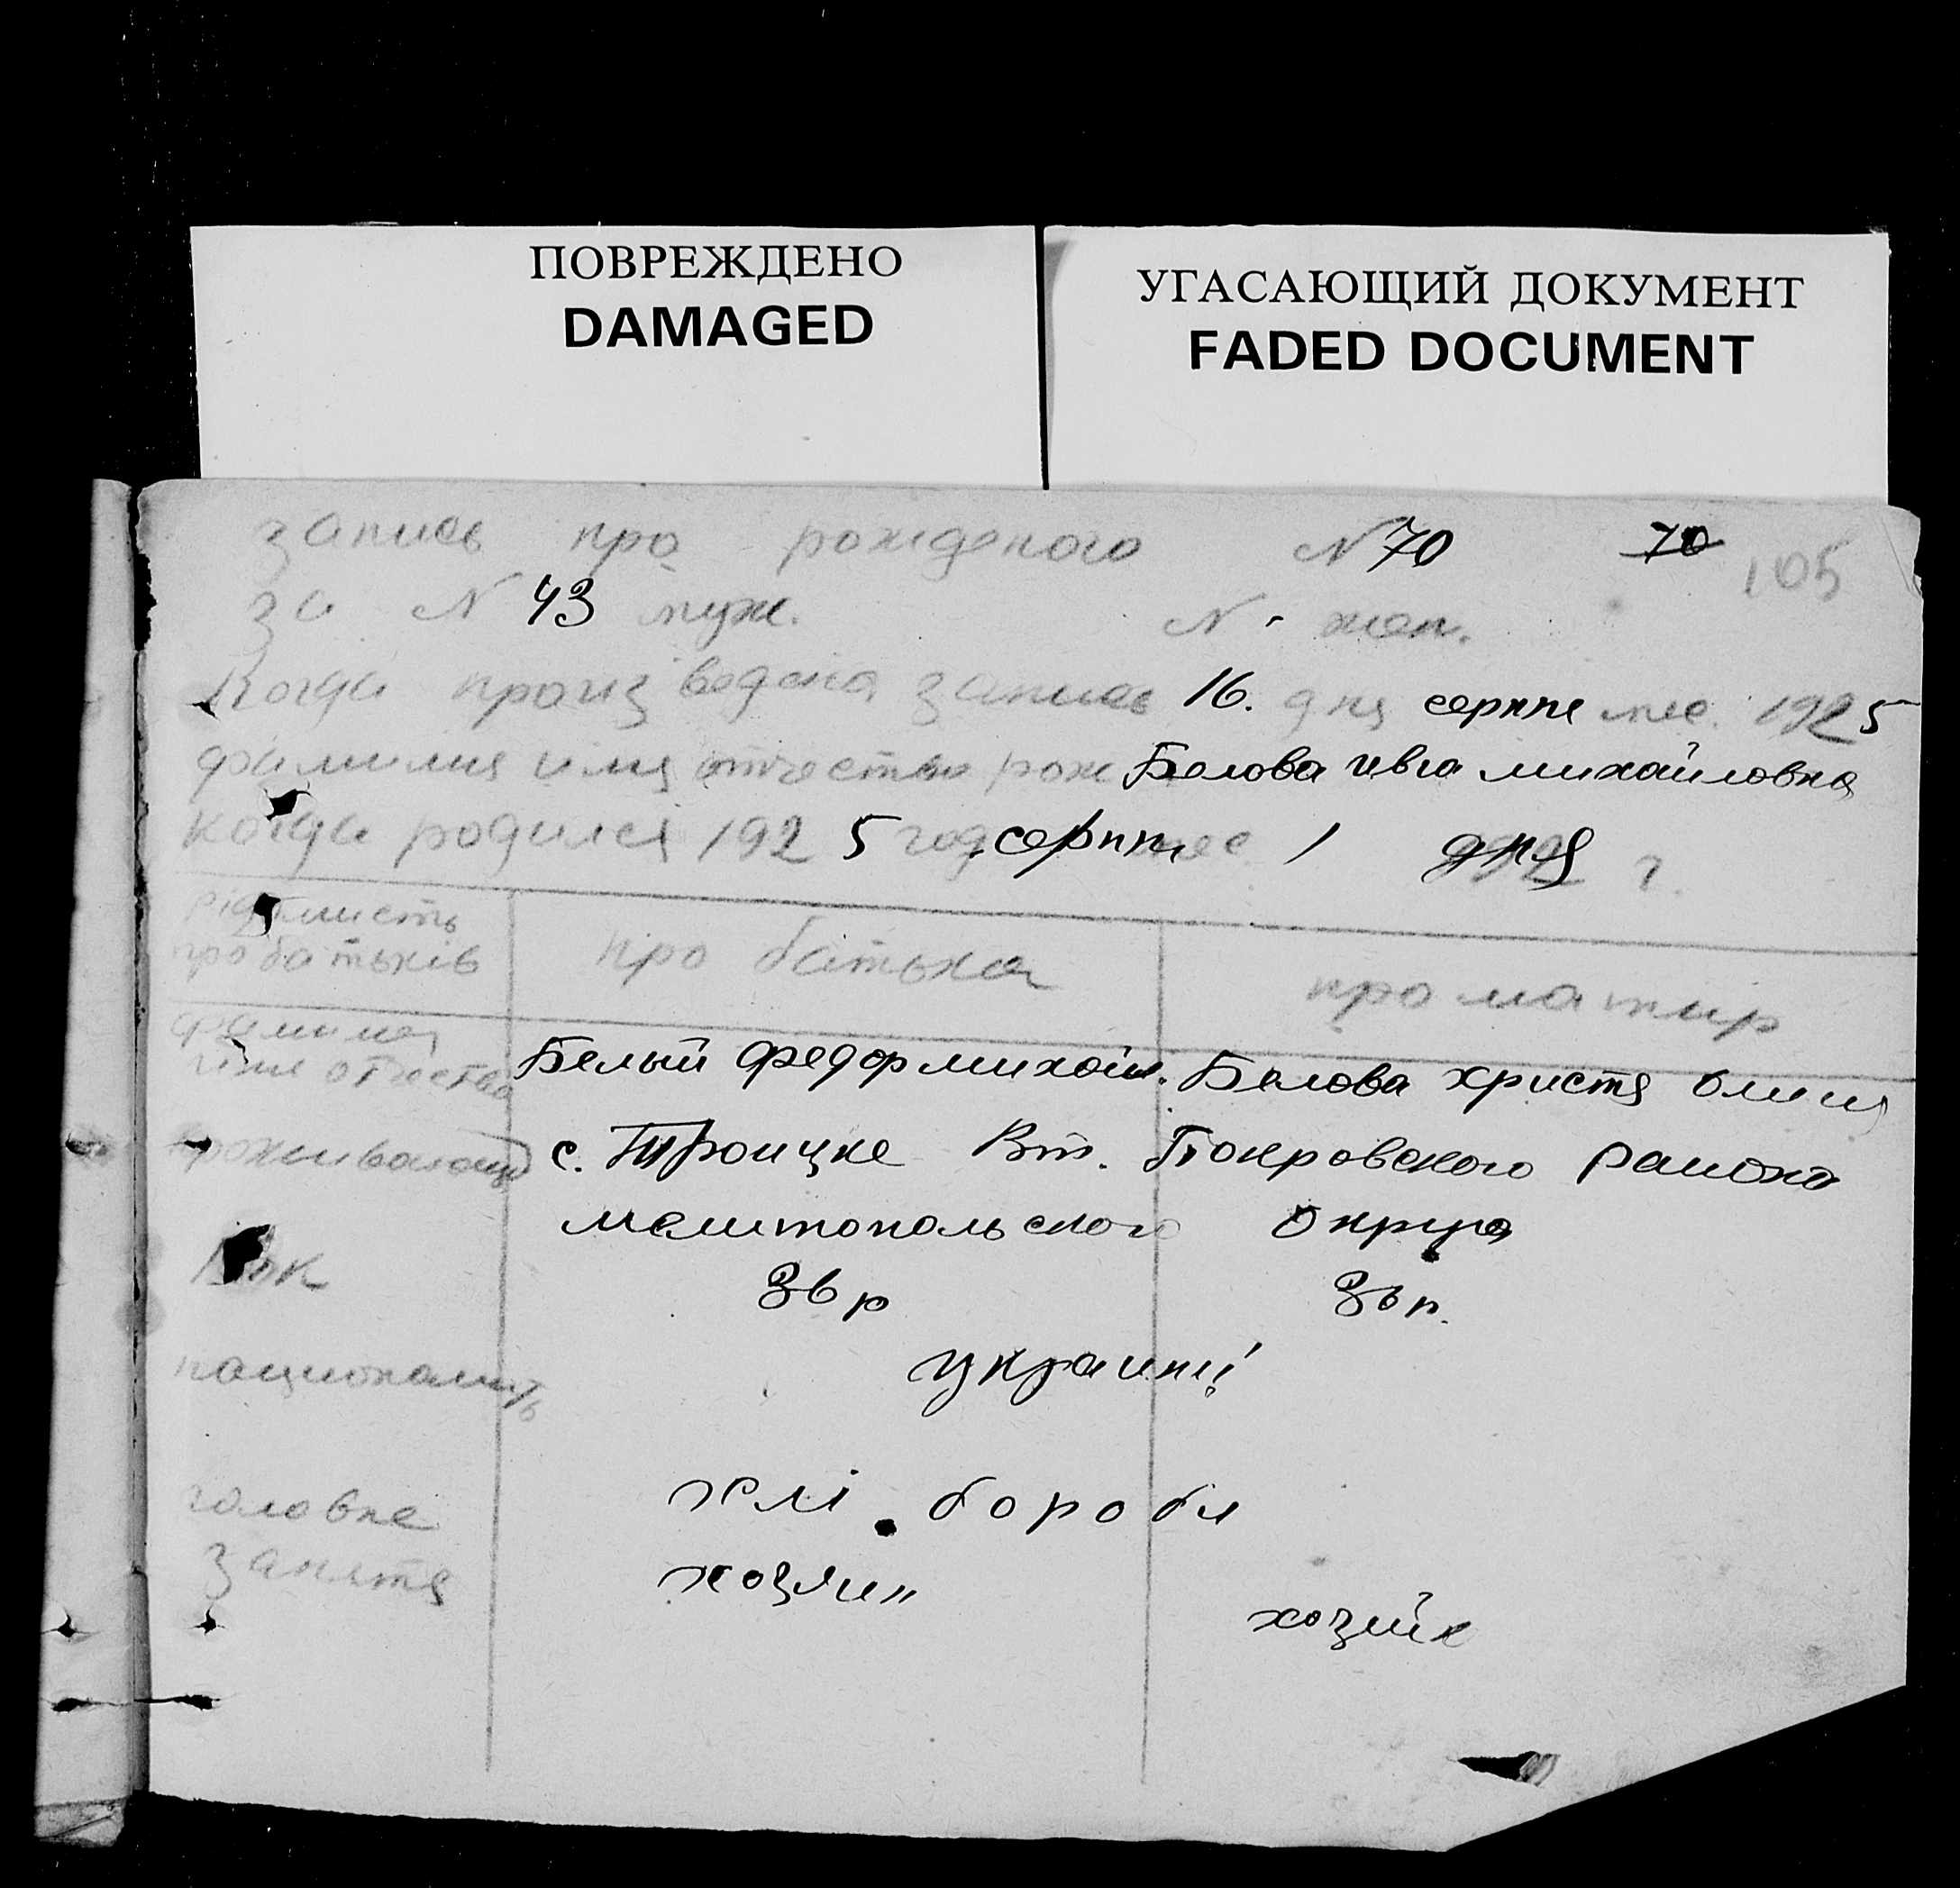 ПОВРЕЖДЕНО
DAMAGED
УГАСАЮЩИЙ ДОКУМЕНТ
FADED DOCUMENT
запись про рожденого N 70 70 105
за N 43 муж. N - жен.
Когда произведена запись 16. дня серпня мес. 1925
фамилия имя отчество рож Белова михайловна
когда родился 1925 год серпня мес 1 дня г.
про батьків
про батька
про матир
фамилия
имя отчество
Белый Федор михайл. Белова христя
проживающ
с. Троицке Вт. Покровского района
мелитопольского округа
Вик
36 р 36 р.
националить
украинці
головне
занятя
хлі боробы
хозяин
хозяйк